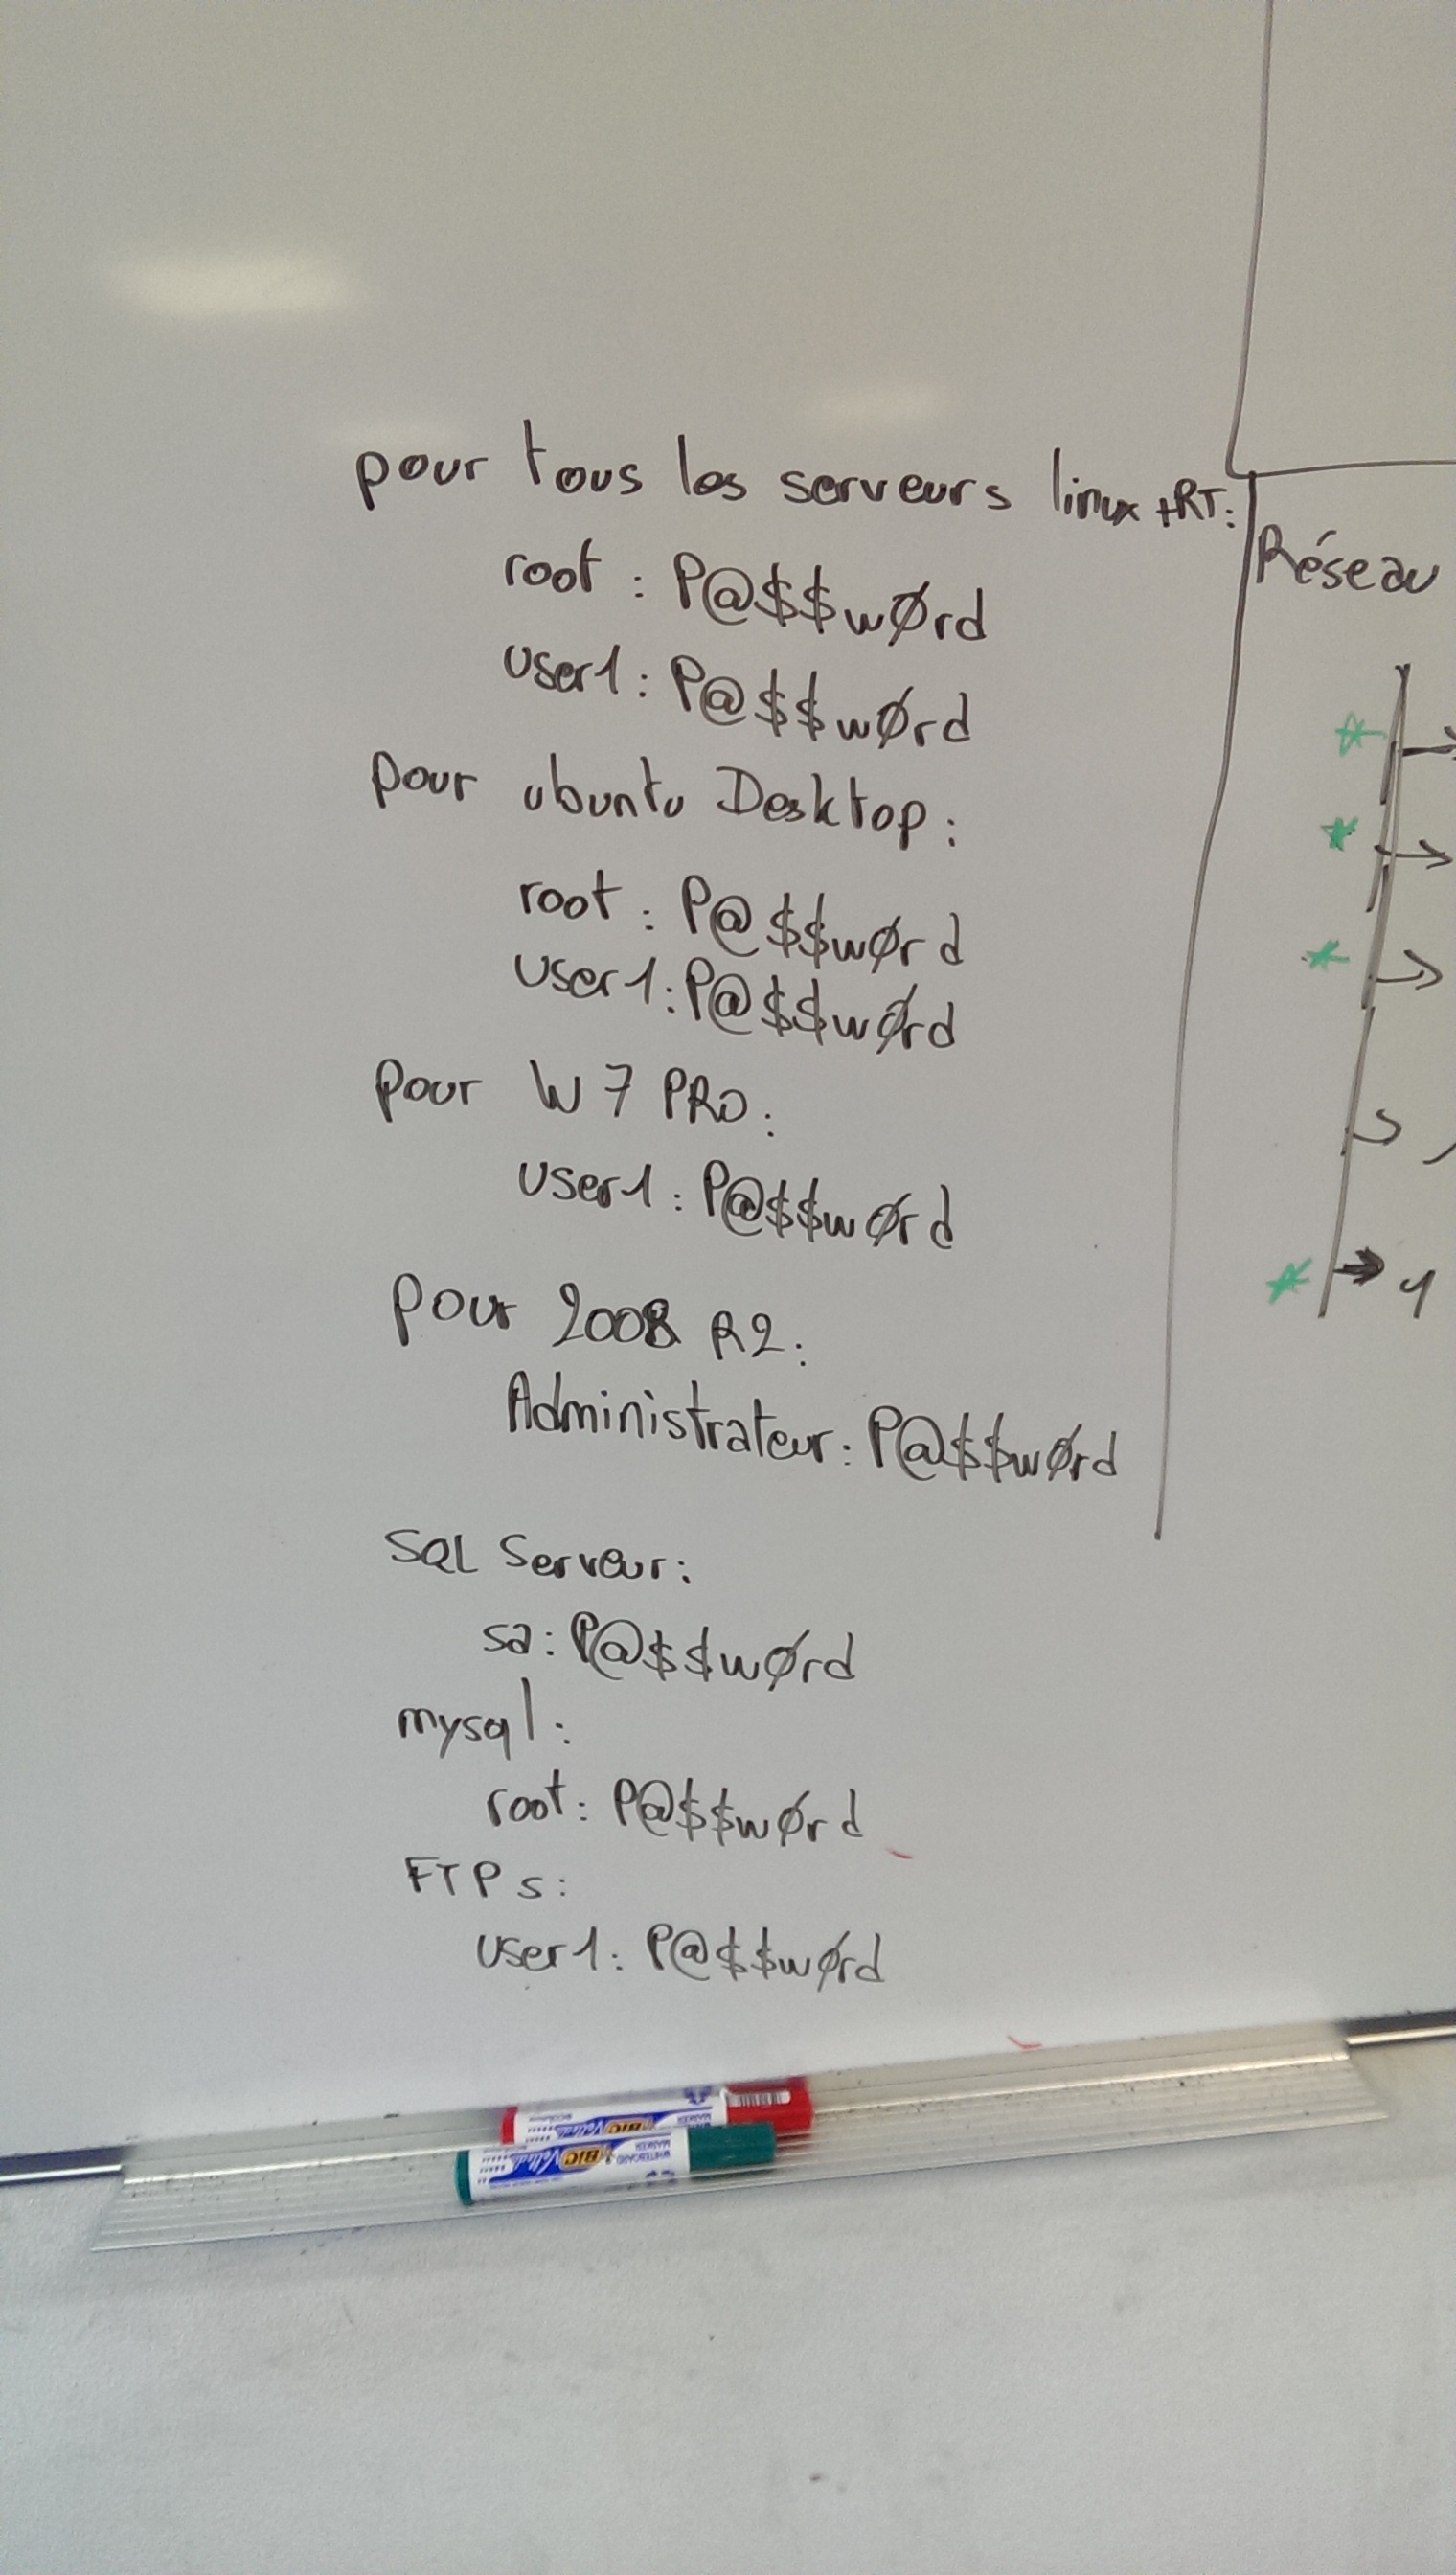 pour tous les serveurs linux +RT:
root : P@$$wØrd
user1: P@$$wØrd
pour ubuntu Desktop:
root : P@$$wØrd
user1: P@$$wØrd
pour W7 PRO:
user1: P@$$wØrd
pour 2008 R2:
Administrateur: P@$$wØrd
SQL Serveur:
sa: P@$$wØrd
mysql:
root: P@$$wØrd
FTPs:
user1: P@$$wØrd
Réseau
BIC Velleda
WHITEBOARD MARKER BIC Velleda